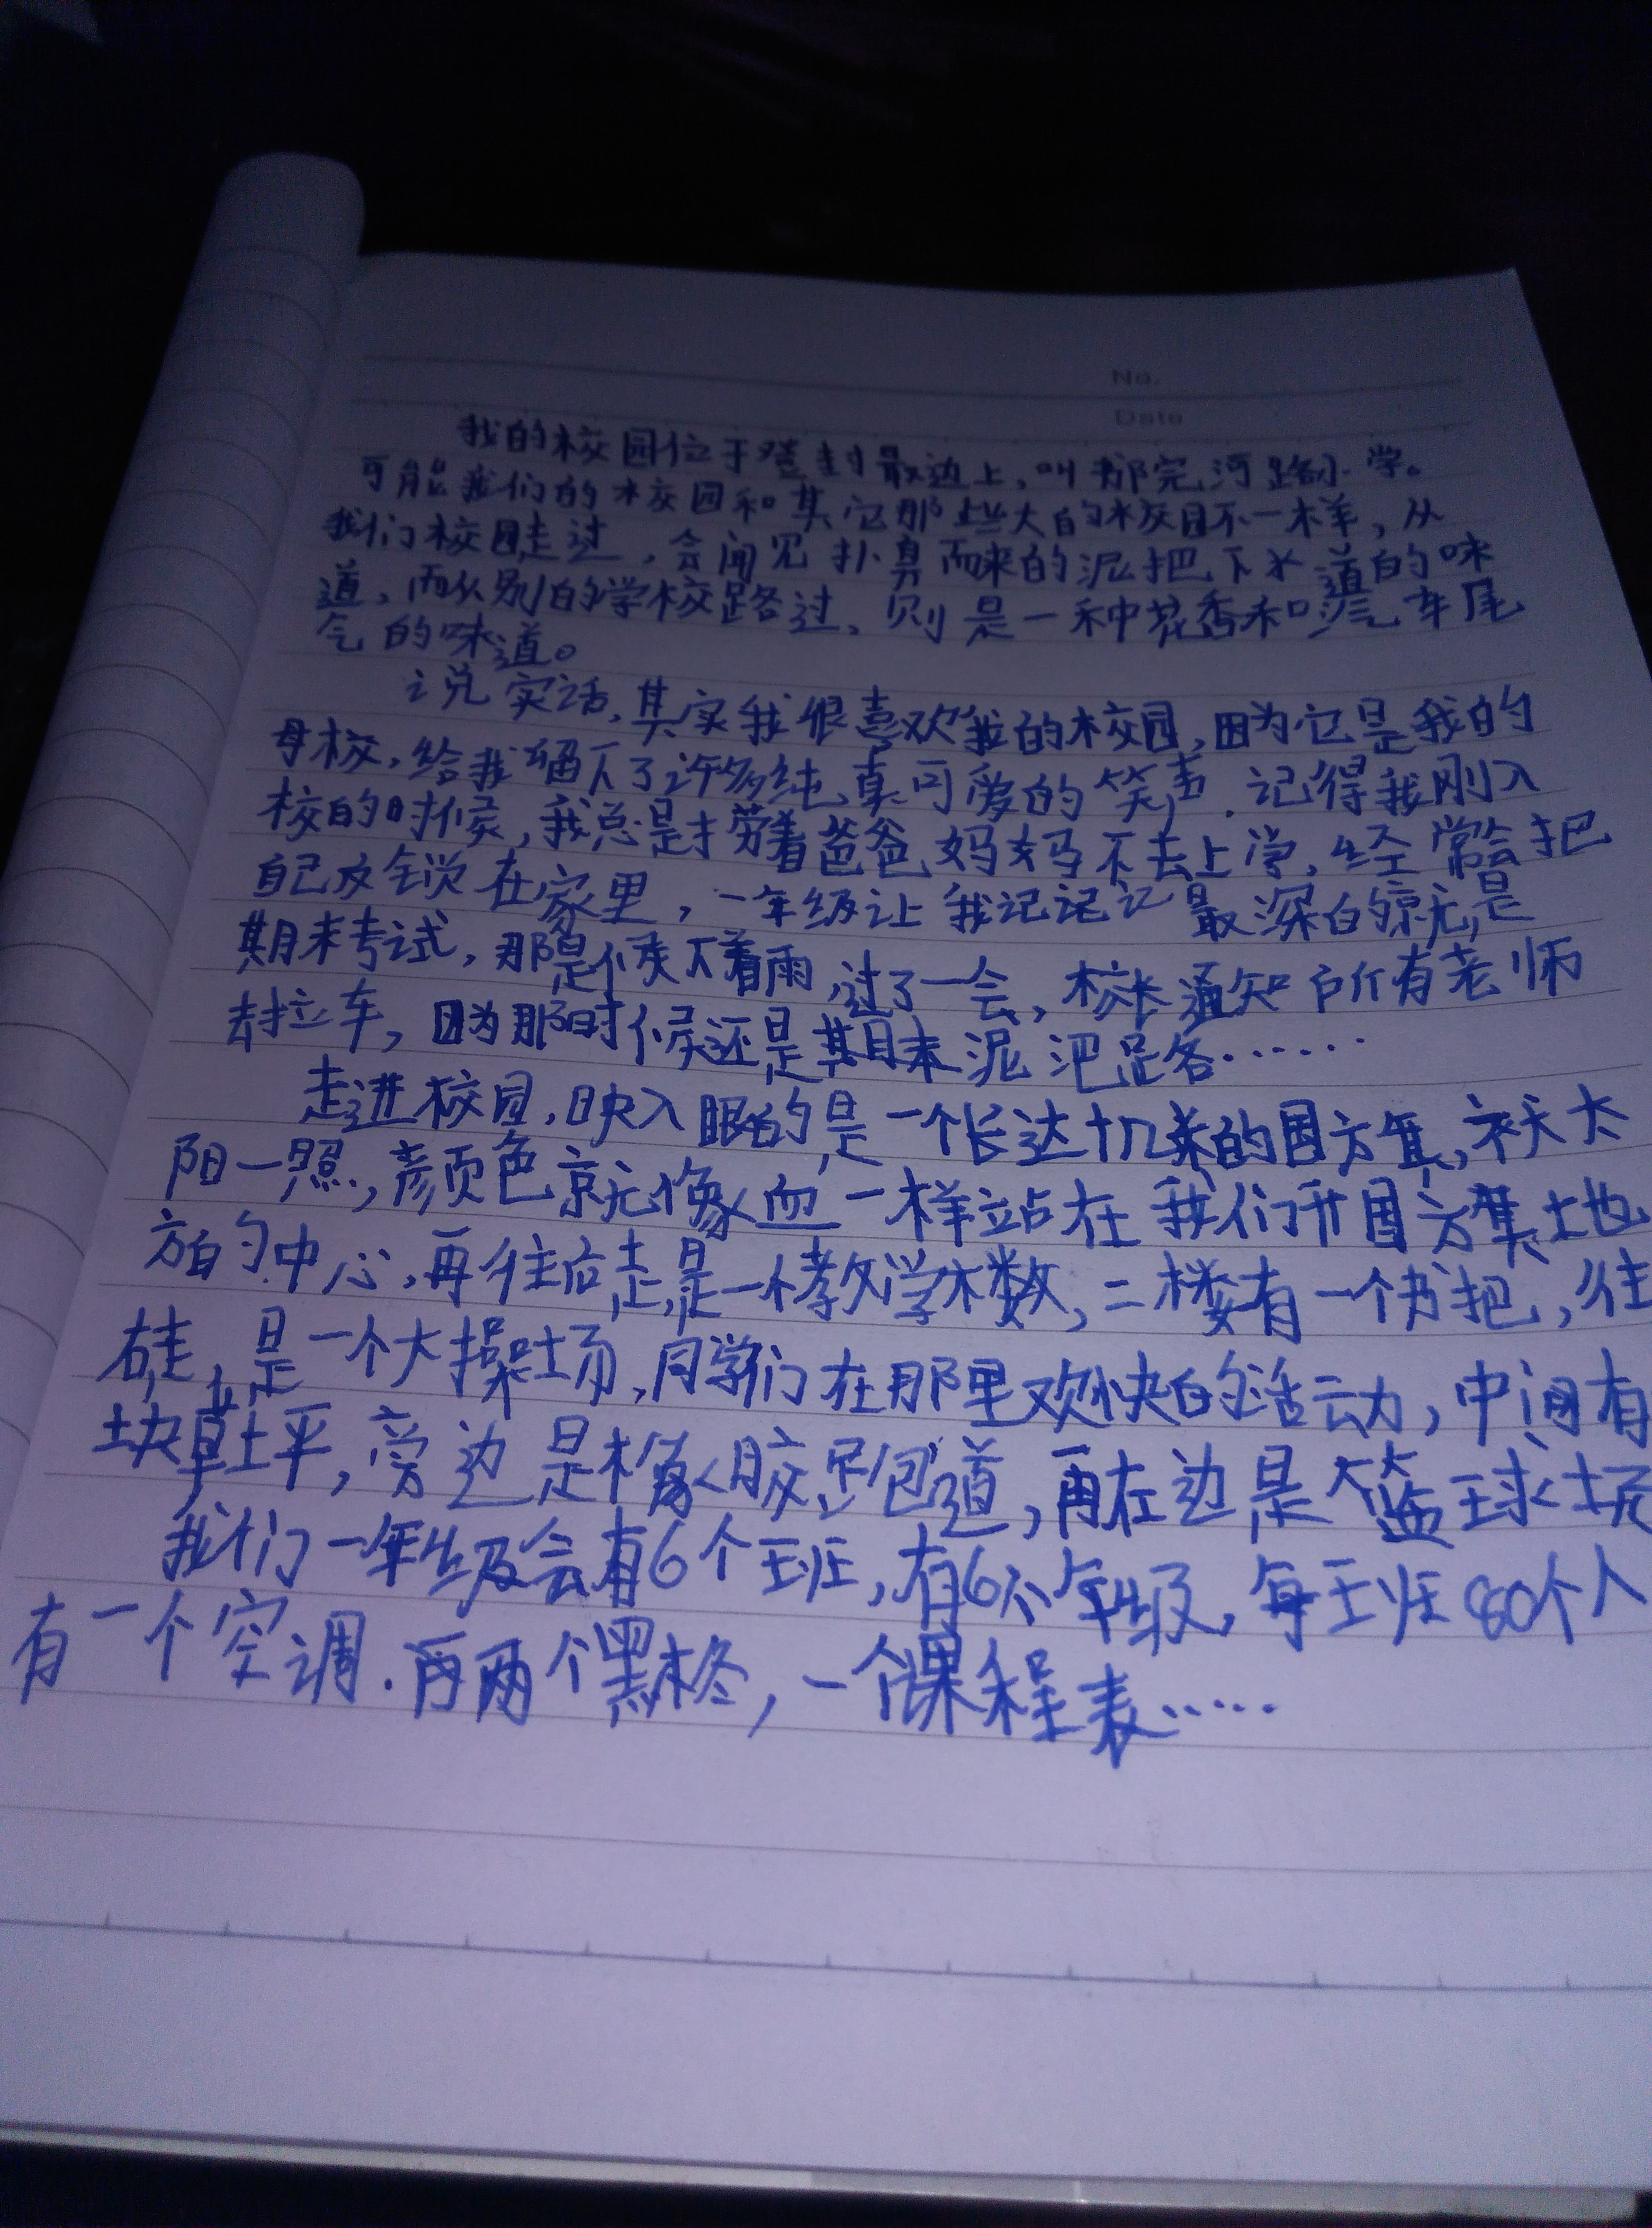 No.
Date
我的校园位于登封最边上，叫书院河路小学。
可能我们的校园和其它那些大的校园不一样，从
我们校园走过，会闻见扑鼻而来的泥把下水道的味
道，而从别的学校路过，则是一种花香和汽车尾
气的味道。
说实话，其实我很喜欢我的校园，因为它是我的
母校，给我留下了许多纯真可爱的笑声．记得我刚入
校的时候，我总是着爸爸妈妈不去上学，经常会把
自己反锁在家里，一年级让我记记记最深的就是
期末考试，那是候下着雨，过了一会，校长通知所有老师
去拉车，因为那时候还是其月末泥泥路……
走进校园，映入眼的是一个长达十几米的国旗，被太
阳一照，颜色就像血一样站在我们升国旗地
方的中心，再往后走，是一栋教学楼，二楼有一个书把，往
右走，是一个大操场，同学们在那里欢快的活动，中间有
块草坪，旁边是橡胶跑道，再左边是大篮球场
我们一年级会有6个班，有6个年级，每班80个人
有一个空调．两个黑板，一个课程表……